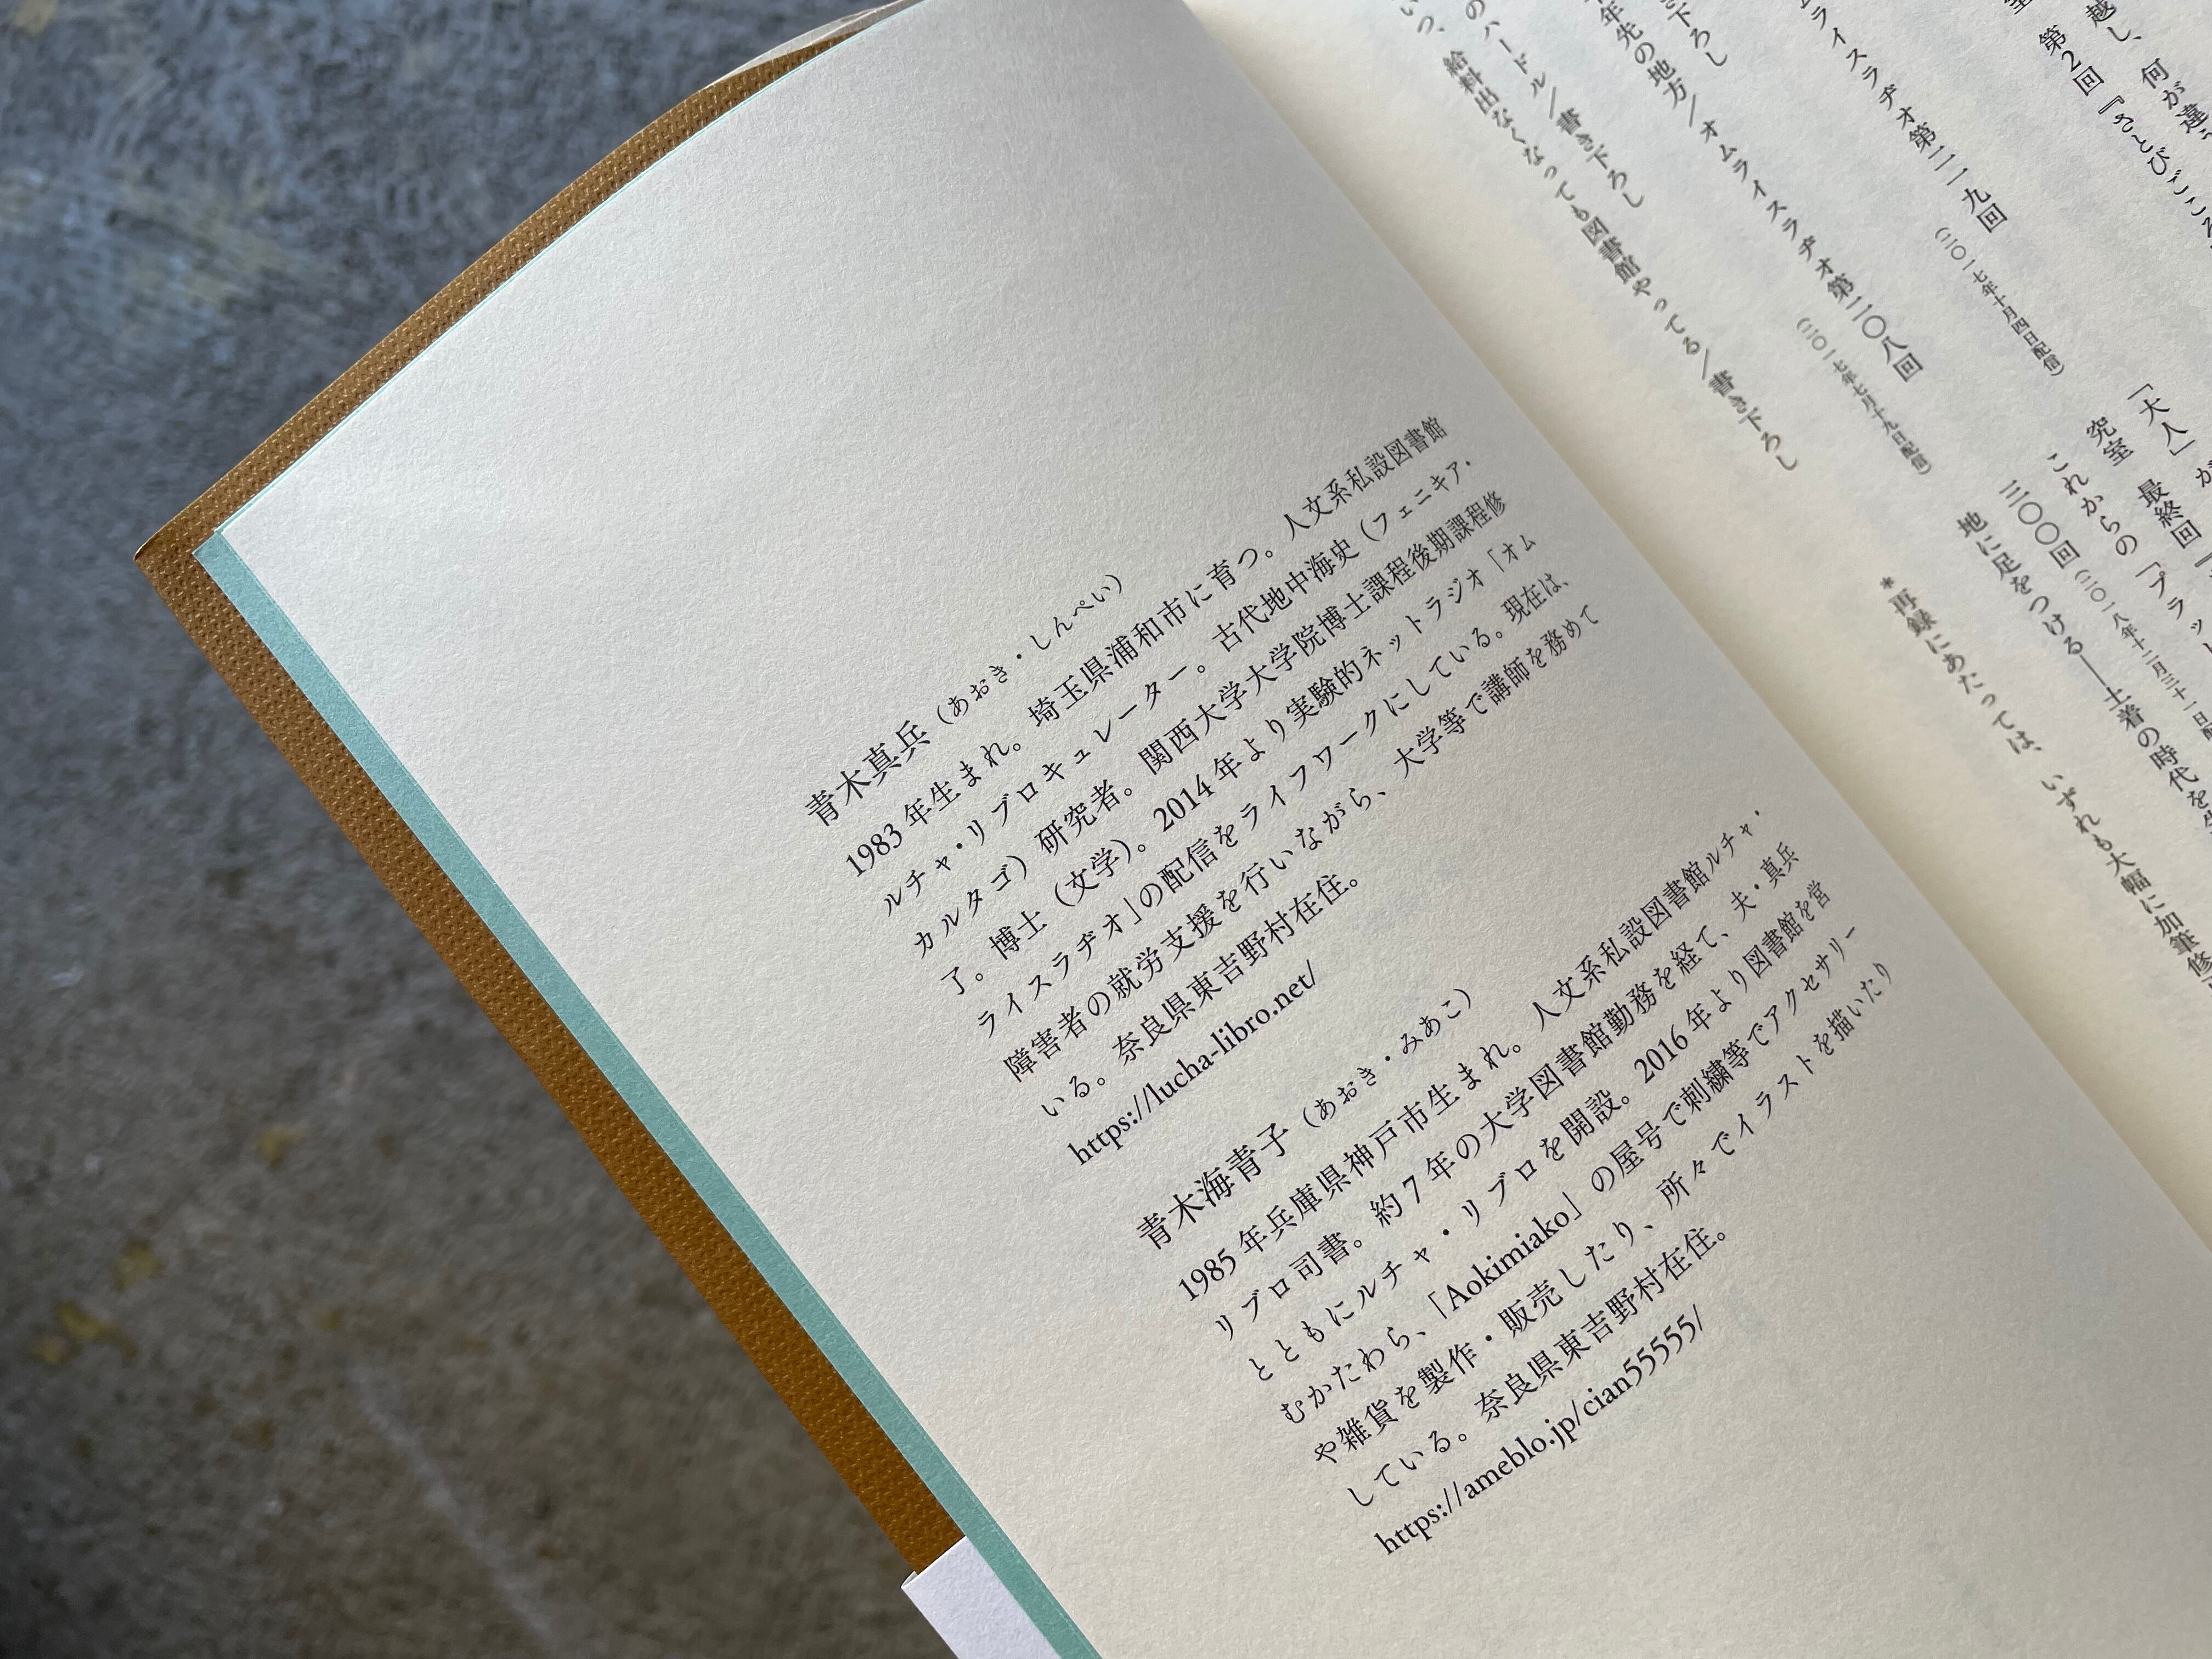 のハードル／書き下ろし
いつ、給料出なくなっても図書館やってる／書き下ろし
き下ろし
年先の地方／オムライスラヂオ第二〇八回
（二〇一七年七月十九日配信）
ムライスラヂオ第二一九回
（二〇一七年十月四日配信）
越し、何が違
第2回『さとびごころ
「大人」が
究室 最終回
これからの「プラット
三〇〇回（二〇一八年十二月三十一日配
地に足をつける―土着の時代を生
＊再録にあたっては、いずれも大幅に加筆修正
青木真兵（あおき・しんぺい）
1983年生まれ。埼玉県浦和市に育つ。人文系私設図書館
ルチャ・リブロキュレーター。古代地中海史（フェニキア・
カルタゴ）研究者。関西大学大学院博士課程後期課程修
了。博士（文学）。2014年より実験的ネットラジオ「オム
ライスラヂオ」の配信をライフワークにしている。現在は、
障害者の就労支援を行いながら、大学等で講師を務めて
いる。奈良県東吉野村在住。
https://lucha-libro.net/
青木海青子（あおき・みあこ）
1985年兵庫県神戸市生まれ。人文系私設図書館ルチャ・
リブロ司書。約7年の大学図書館勤務を経て、夫・真兵
とともにルチャ・リブロを開設。2016年より図書館を営
むかたわら、「Aokimiako」の屋号で刺繍等でアクセサリー
や雑貨を製作・販売したり、所々でイラストを描いたり
している。奈良県東吉野村在住。
https://ameblo.jp/cian55555/